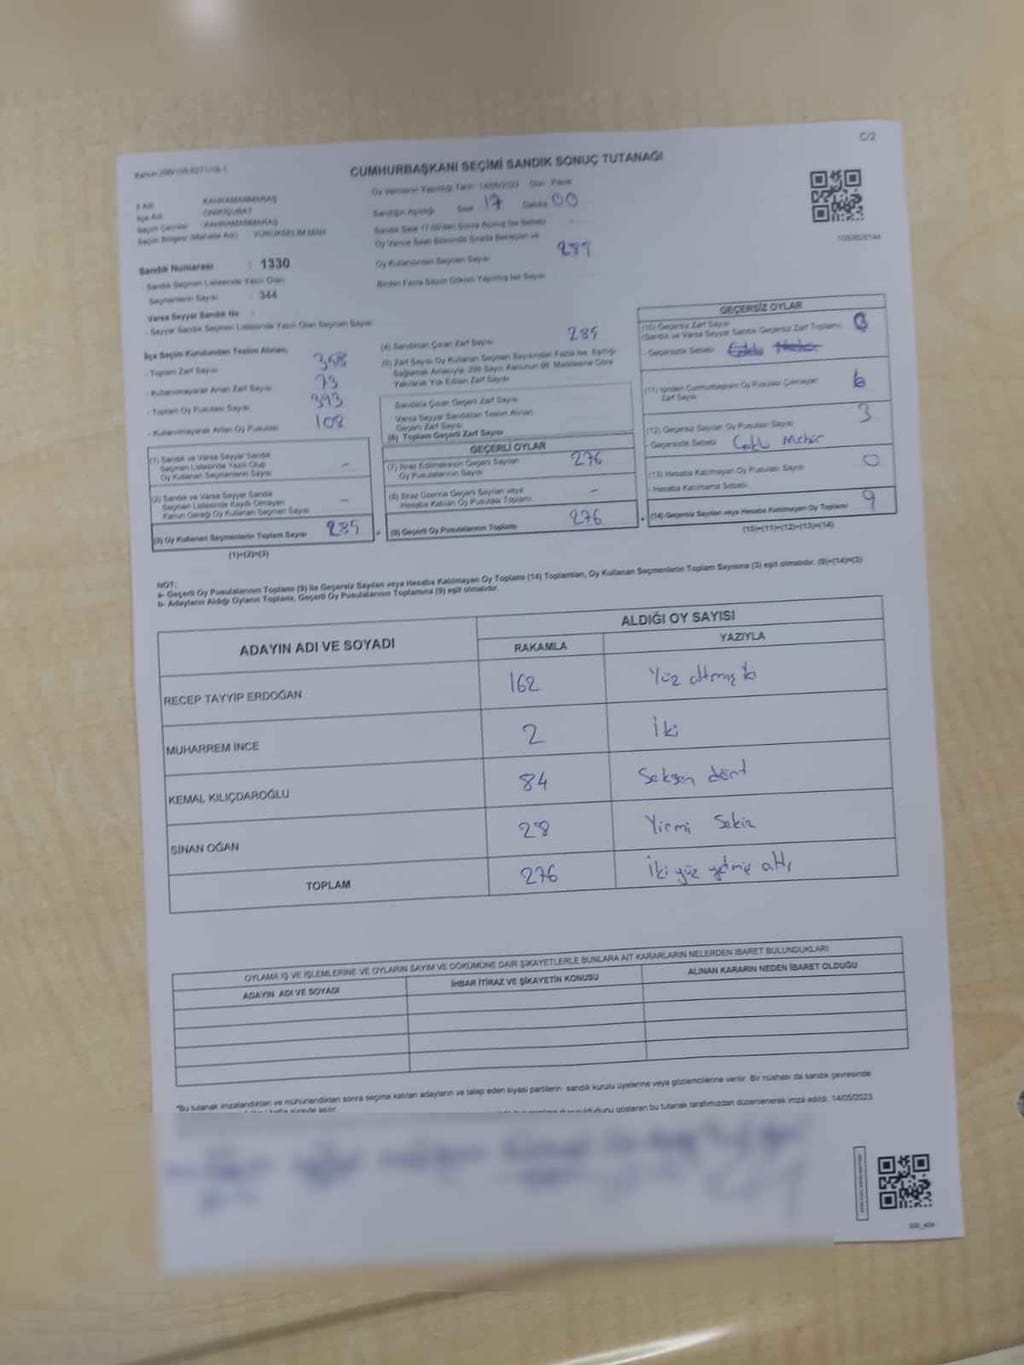 C/2
CUMHURBAŞKANI SEÇİMİ SANDIK SONUÇ TUTANAĞI
İl Adı : KAHRAMANMARAŞ
İlçe Adı : ONİKİŞUBAT
Seçim Çevresi : KAHRAMANMARAŞ
Seçim Bölgesi (Mahalle Adı) : YÜRÜKSELİM MAH
Sandık Numarası : 1330
- Sandık Seçmen Listesinde Yazılı Olan
Seçmenlerin Sayısı : 344
Varsa Seyyar Sandık No :
- Seyyar Sandık Seçmen Listesinde Yazılı Olan Seçmen Sayısı:
Oy Vermenin Yapıldığı Tarih : 14/05/2023 Gün : Pazar
Sandığın Açıldığı Saat : 17 Dakika : 00
Sandık Saat 17.00'den Sonra Açılmış İse Sebebi
Oy Verme Saati Bitiminde Sırada Bekleyen ve
Oy Kullandırılan Seçmen Sayısı
Birden Fazla Sayım Döküm Yapılmış İse Sayısı
İlçe Seçim Kurulundan Teslim Alınan;
- Toplam Zarf Sayısı 358
- Kullanılmayarak Artan Zarf Sayısı 73
- Toplam Oy Pusulası Sayısı 393
- Kullanılmayarak Artan Oy Pusulası 108
(1) Sandık ve Varsa Seyyar Sandık
Seçmen Listesinde Yazılı Olup
Oy Kullanan Seçmenlerin Sayısı -
(2) Sandık ve Varsa Seyyar Sandık
Seçmen Listesinde Kaydı Olmayan
Kanun Gereği Oy Kullanan Seçmen Sayısı -
(3) Oy Kullanan Seçmenlerin Toplam Sayısı 285
(1)+(2)=(3)
(4) Sandıktan Çıkan Zarf Sayısı 285
(5) Zarf Sayısı Oy Kullanan Seçmen Sayısından Fazla İse, Eşitliği
Sağlamak Amacıyla, 298 Sayılı Kanunun 98. Maddesine Göre
Yakılarak Yok Edilen Zarf Sayısı
Sandıkta Çıkan Geçerli Zarf Sayısı
Varsa Seyyar Sandıktan Teslim Alınan
Geçerli Zarf Sayısı
(6) Toplam Geçerli Zarf Sayısı
GEÇERLİ OYLAR
(7) İtiraz Edilmeksizin Geçerli Sayılan
Oy Pusulasının Sayısı 276
(8) İtiraz Üzerine Geçerli Sayılan veya
Hesaba Katılan Oy Pusulası Toplamı -
(9) Geçerli Oy Pusulalarının Toplamı 276
GEÇERSİZ OYLAR
(10) Geçersiz Zarf Sayısı
(Sandık ve Varsa Seyyar Sandık Geçersiz Zarf Toplamı)
- Geçersizlik Sebebi
(11) İçinden Cumhurbaşkanı Oy Pusulası Çıkmayan
Zarf Sayısı 6
(12) Geçersiz Sayılan Oy Pusulası Sayısı 3
- Geçersizlik Sebebi Çoklu Mühür
(13) Hesaba Katılmayan Oy Pusulası Sayısı 0
- Hesaba Katılmama Sebebi
(14) Geçersiz Sayılan veya Hesaba Katılmayan Oy Toplamı 9
(10)+(11)+(12)+(13)=(14)
NOT:
a- Geçerli Oy Pusulalarının Toplamı (9) ile Geçersiz Sayılan veya Hesaba Katılmayan Oy Toplamı (14) Toplamları, Oy Kullanan Seçmenlerin Toplam Sayısına (3) eşit olmalıdır. (9)+(14)=(3)
b- Adayların Aldığı Oyların Toplamı, Geçerli Oy Pusulalarının Toplamına (9) eşit olmalıdır.
ADAYIN ADI VE SOYADI ALDIĞI OY SAYISI
RAKAMLA YAZIYLA
RECEP TAYYİP ERDOĞAN 162 Yüz altmış iki
MUHARREM İNCE 2 İki
KEMAL KILIÇDAROĞLU 84 Seksen dört
SİNAN OĞAN 28 Yirmi Sekiz
TOPLAM 276 İki yüz yetmiş altı
OYLAMA İŞ VE İŞLEMLERİNE VE OYLARIN SAYIM VE DÖKÜMÜNE DAİR ŞİKAYETLERLE BUNLARA AİT KARARLARIN NELERDEN İBARET BULUNDUKLARI
ADAYIN ADI VE SOYADI İHBAR İTİRAZ VE ŞİKAYETİN KONUSU ALINAN KARARIN NEDEN İBARET OLDUĞU
*Bu tutanak imzalandıktan ve mühürlendikten sonra seçime katılan adayların ve talep eden siyasi partilerin sandık kurulu üyelerine veya gözlemcilerine verilir. Bir nüshası da sandık çevresinde
gösteren bu tutanak tarafımızdan düzenlenerek imza edildi. 14/05/2023